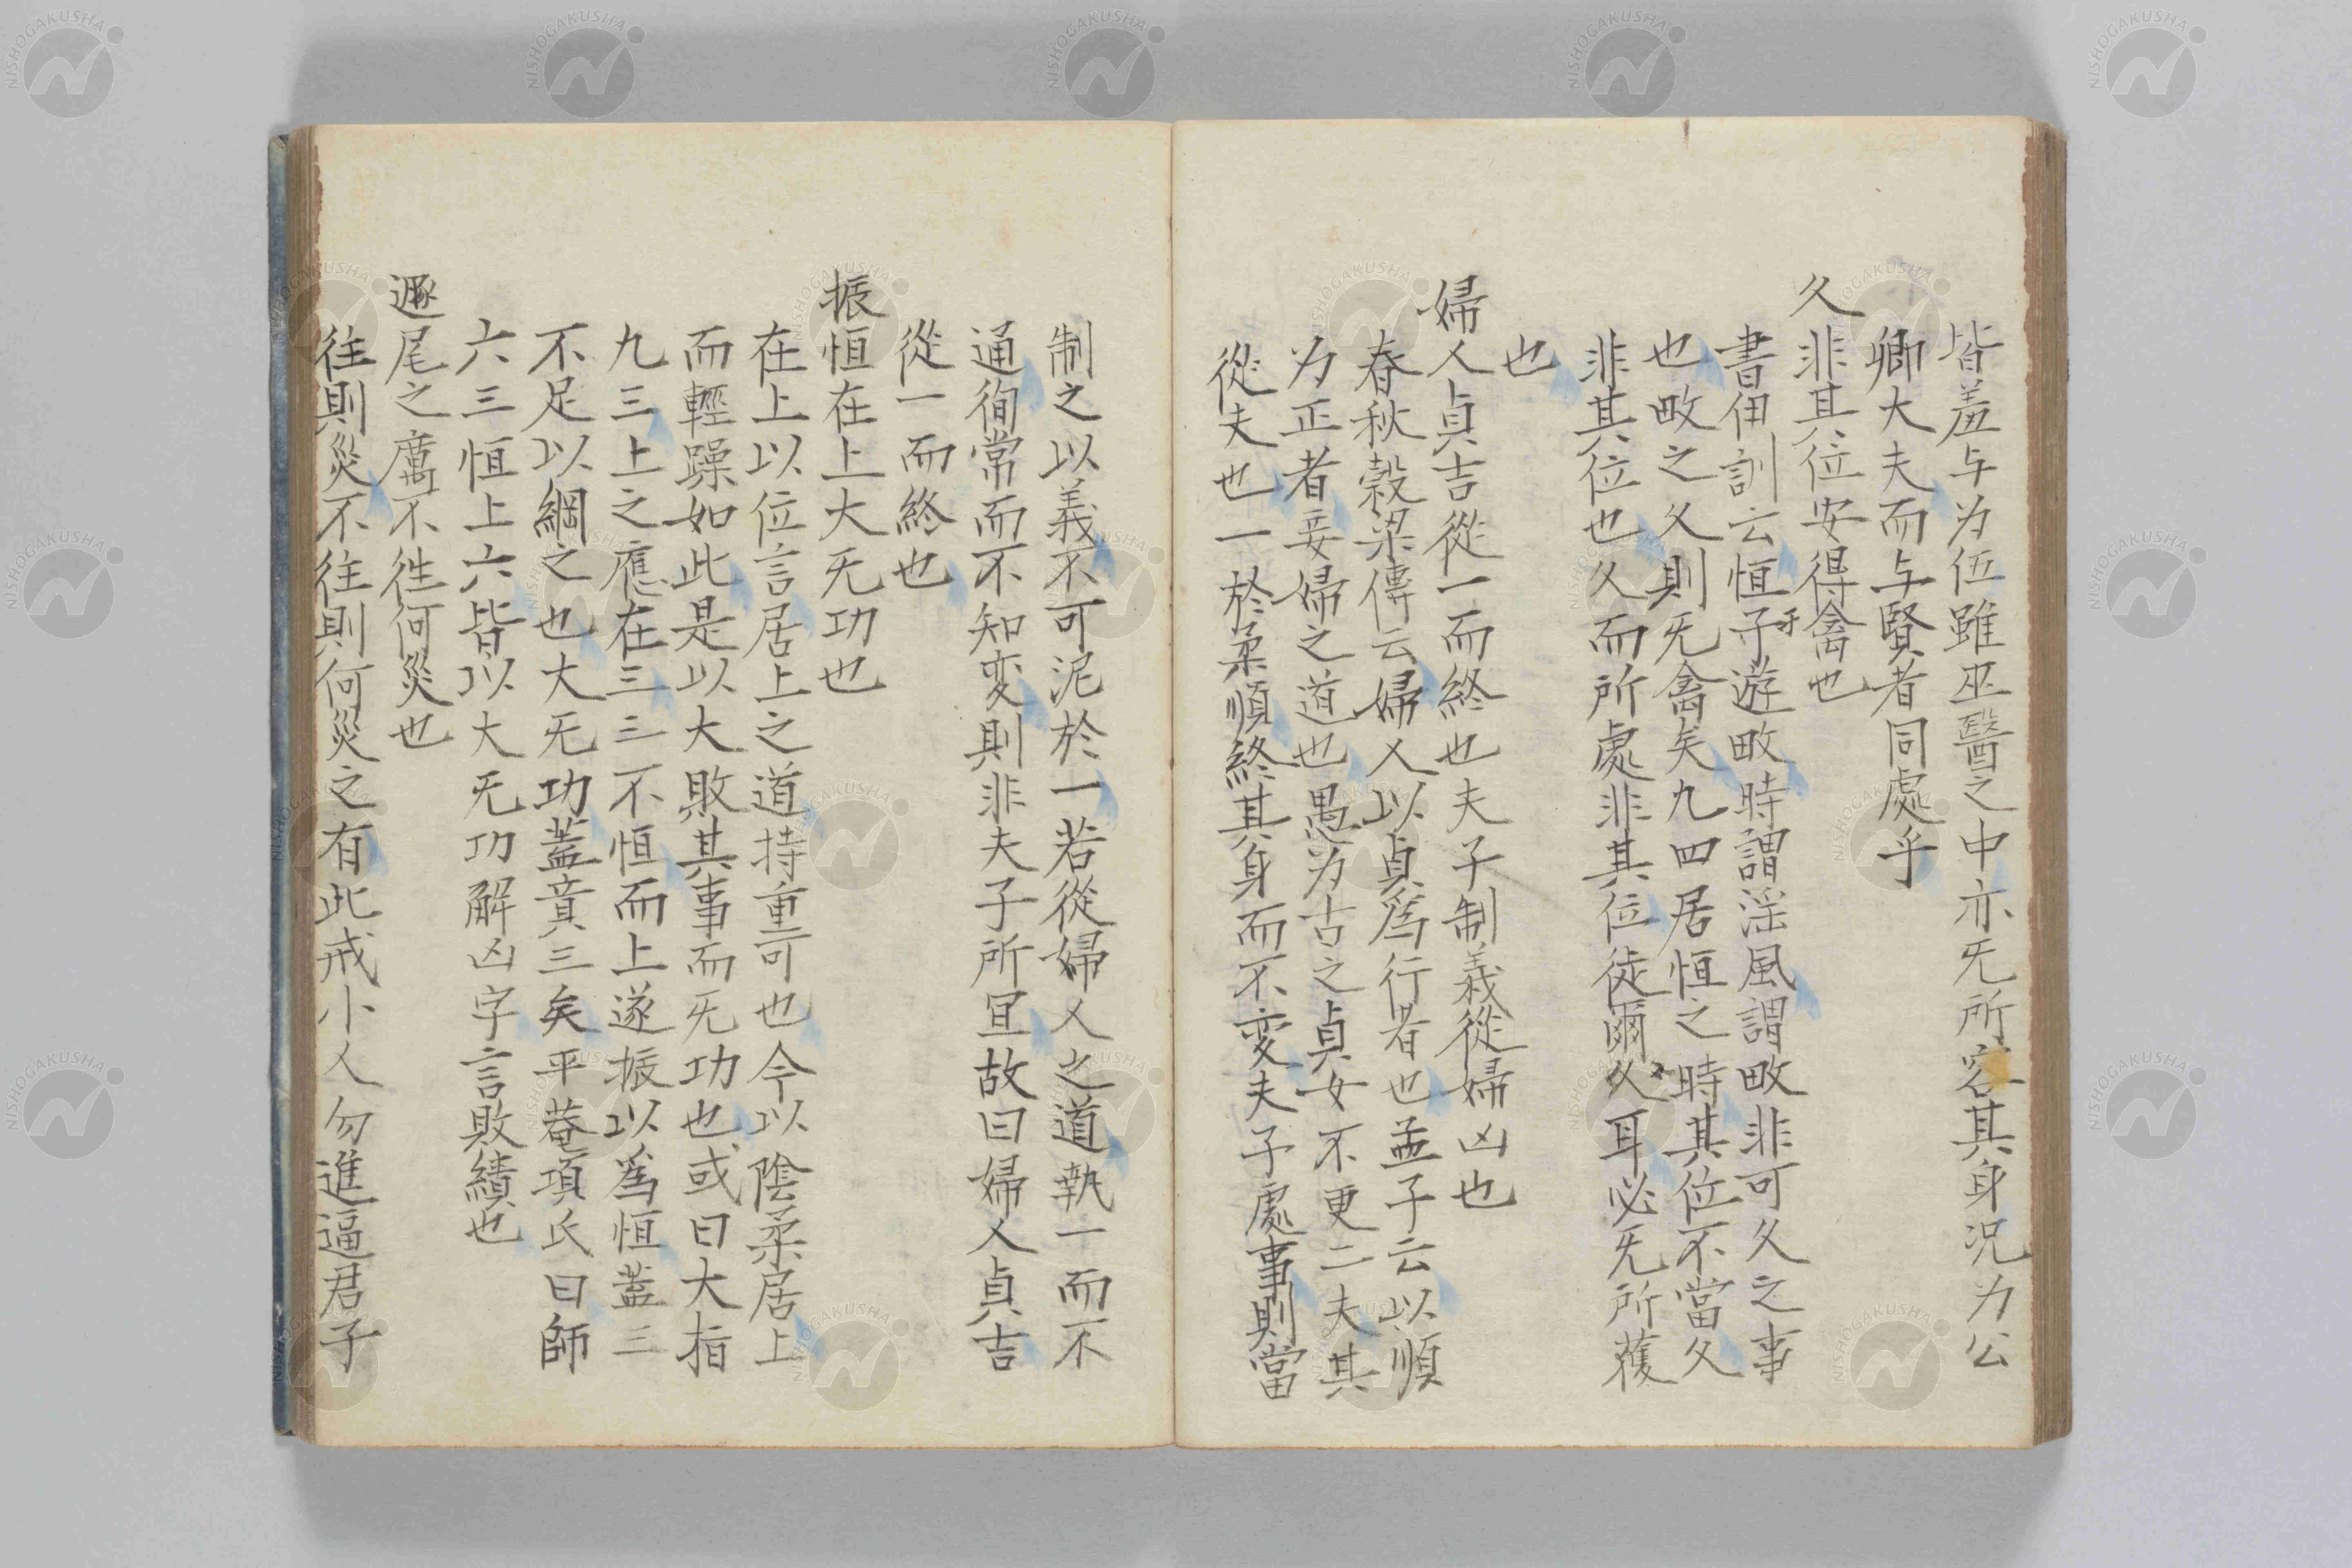 皆羞与为伍雖巫醫之中亦旡所容其身况为公
卿大夫而与賢者同處乎
久非其位安得禽也
書伊訓云恒于遊畋時謂淫風謂畋非可久之事
也畋之久則旡禽矣九四居恒之時其位不當久
非其位也久而所處非其位徒爾久耳必旡所獲
也
婦人貞吉從一而終也夫子制義從婦凶也
春秋穀梁傳云婦人以貞爲行者也孟子云以順
为正者妾婦之道也愚为古之貞女不更二夫其
從夫也一於柔順終其身而不変夫子處事則當
制之以義不可泥於一若從婦人之道執一而不
通徇常而不知変則非夫子所宜故曰婦人貞吉
從一而終也
振恒在上大旡功也
在上以位言居上之道持重可也今以陰柔居上
而輕躁如此是以大敗其事而旡功也或曰大指
九三上之應在三三不恒而上遂振以爲恒蓋三
不足以綱之也大旡功蓋責三矣平菴項氏曰師
六三恒上六皆以大旡功解凶字言敗績也
遯尾之厲不徃何災也
往則災不往則何災之有此戒小人勿進逼君子
NISHOGAKUSHA